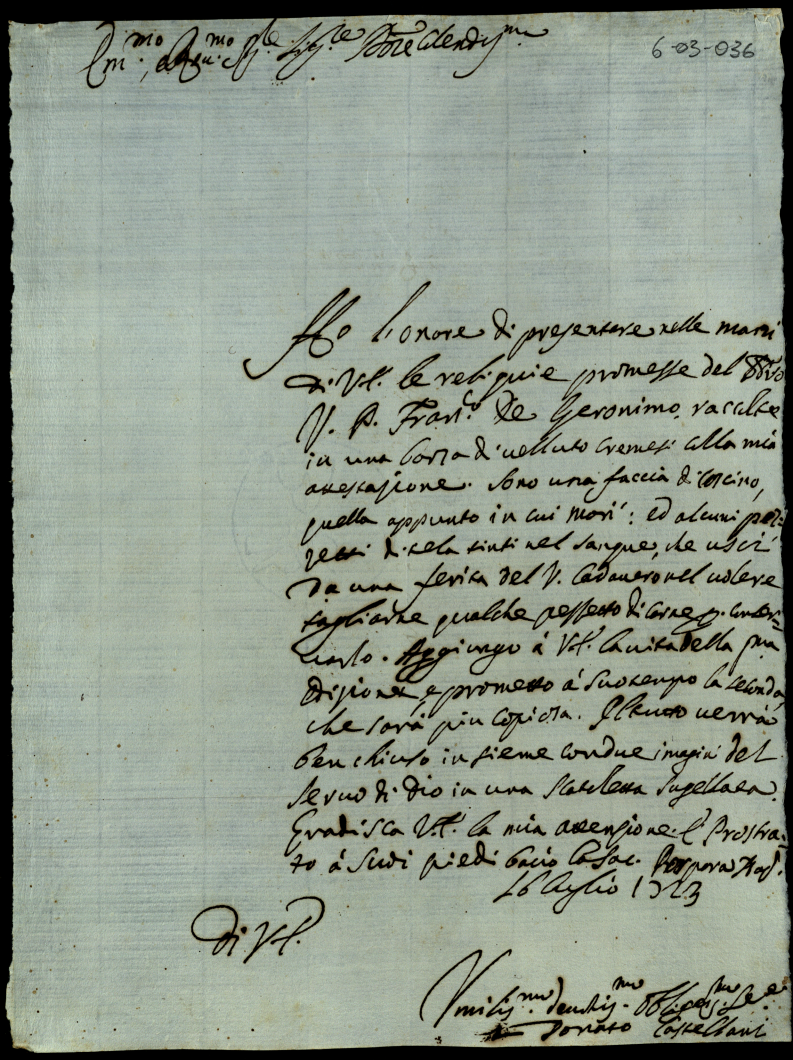 6-03-036
Em.mo, e Rev.mo Sig.re
Ho l'onore di presentare nelle mani
di V.E. le reliquie promesse del
V. P. Fran.co De Geronimo, raccolte
in una borza di velluto cremesi colla mia
attestazione. Sono una faccia di coscino,
quella appunto in cui morì: ed alcuni pez-
zetti di tela tinti nel sangue, che uscì
da una ferita del V. Cadavero nel volere
tagliarne qualche pezzetto di carne p.
varlo. Aggiungo á V.E. la vita della p̃ma
edizione, e prometto á suo tempo la seconda,
che sarà piu copiosa. Il tutto verrà
ben chiuso insieme con due imagini del
Servo di Dio in una scatoletta sugellata.
Gradisca V.E. la mia attenzione. E Prostra-
to á suoi piedi bacio la Sac. Porpora Nap.
16 Luglio 1723
Di V.E.
Umilis.mo devotis.mo Obligatis.mo Se.e
Donato Castellani